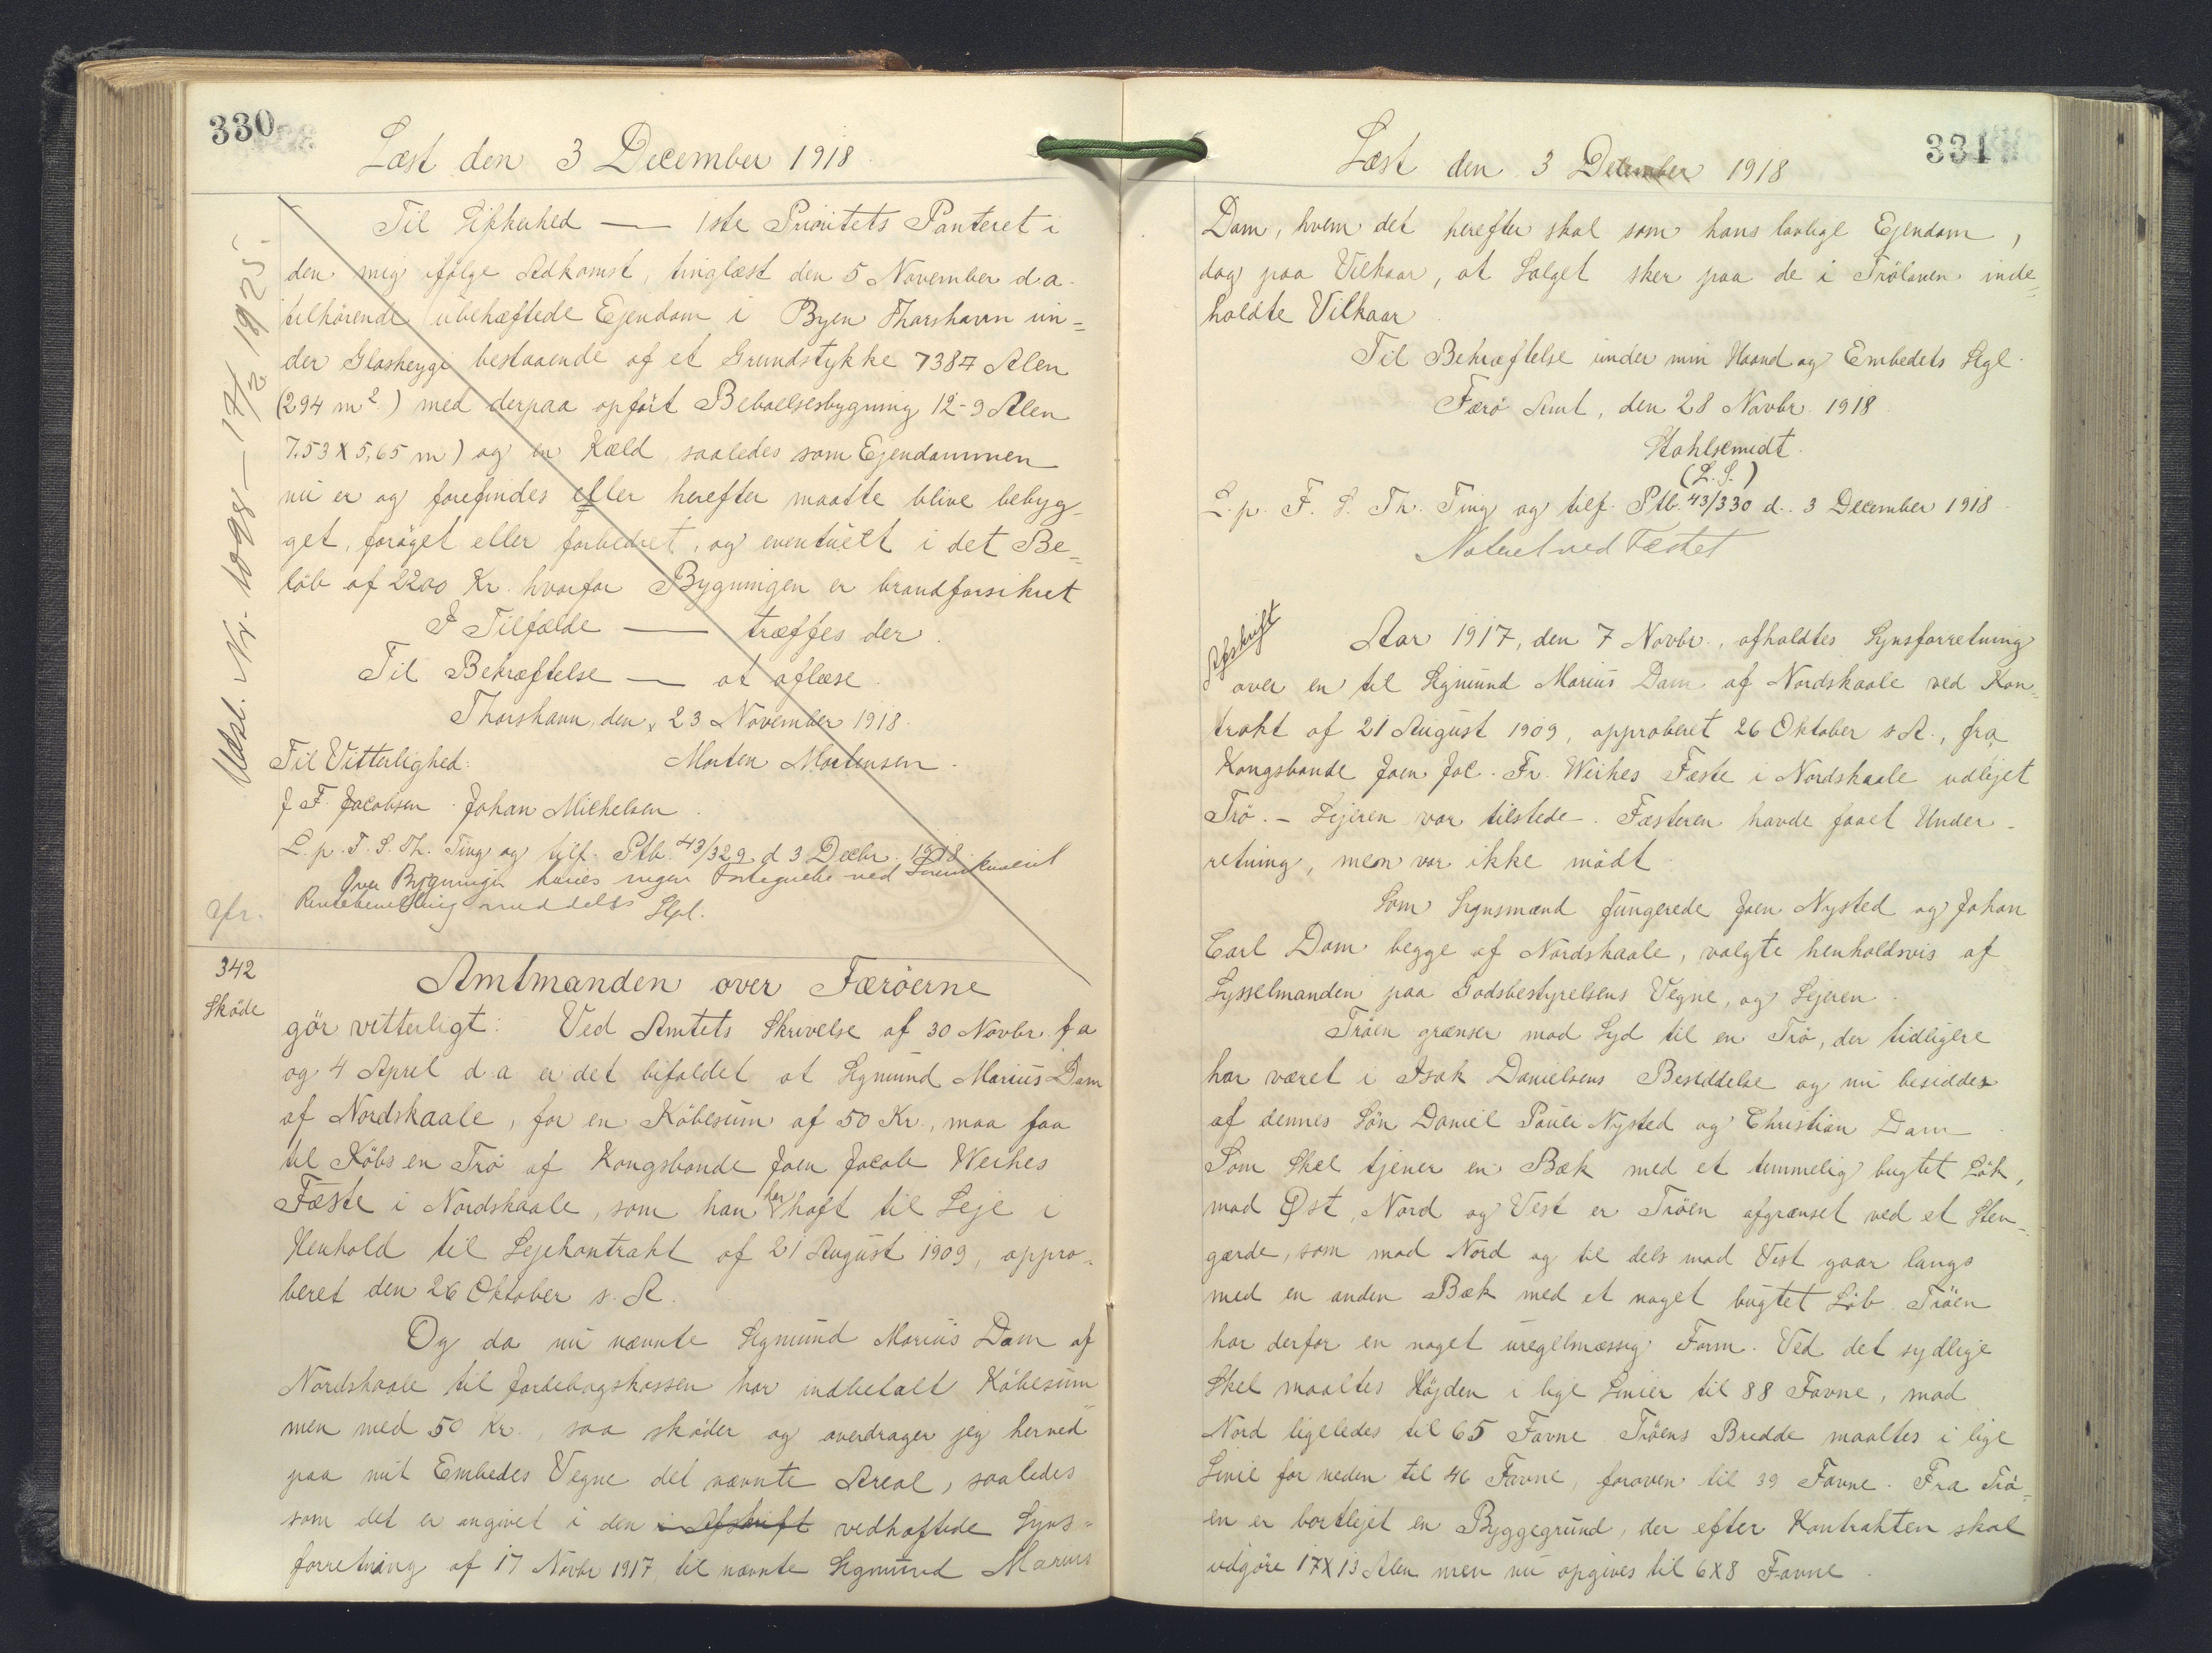 330
Læst den 3 December 1918.
Udsl. Nr. 1098 — 17/2 1925.
Til Sikkerhed — 1ste Prioritets Panteret i
den mig ifølge Adkomst, tinglæst den 5 November d.a.
tilhörende ubehæftede Ejendom i Byen Thorshavn un=
der Glasheygi bestaaende af et Grundstykke 7384 Alen
(294 m²) med derpaa opført Beboelsesbygning 12-9 Alen
7.53 X 5,65 m) og en Kæld, saaledes som Ejendommen
nu er og forefindes eller herefter maatte blive bebyg-
get, forøget eller forbedret, og eventuelt i det Be=
løb af 2200 Kr. hvorfor Bygningen er brandforsikret
I Tilfælde — træffes der.
Til Bekræftelse — at aflæse.
Thorshavn, den 23 November 1918.
Til Vitterlighed: Morten Mortensen.
J F. Jacobsen. Johan Michelsen.
L. p. F. S. Th. Ting og tilf. Ptb. 43/329 d 3 Decbr. 1918.
Over Bygningen haves ingen
meddelt
342
Skøde
Amtmanden over Færöerne
gör vitterligt: Ved Amtets Skrivelse af 30 Novbr. f a
og 4 April d.a er det bifaldet at Sigmund Marius Dam
af Nordskaale, for en Købesum af 50 Kr., maa faa
til Købs en Trö af Kongsbonde Joen Jacob Weihes
Fæste i Nordskaale, som han har haft til Leje i
Henhold til Lejekontrakt af 21 August 1909, appro-
beret den 26 Oktober s. A.
Og da nu nævnte Sigmund Marius Dam af
Nordskaale til Jordebogskassen har indbetalt Købesum
men med 50 Kr., saa skøder og overdrager jeg herved
paa mit Embedes Vegne det nævnte Areal, saaledes
som det er angivet i den i Afskrift vedhæftede Syns=
forretning af 17 Novbr 1917 til nævnte Sigmund Marius
331
Læst den 3 December 1918
Dam, hvem det herefter skal som hans lovlige Ejendom,
dog paa Vilkaar, at Salget sker paa de i Trölaven inde=
holdte Vilkaar.
Til Bekræftelse under min Haand og Embedets Segl.
Færö Amt, den 28 Novbr. 1918
Stahlsmidt.
(L.S.)
L. p. F. S. Th. Ting og tilf. Ptb. 43/330 d. 3 December 1918.
Noteret ved Fæstet
Afskrift
Aar 1917, den 7 Novbr., afholdtes Synsforretning
over en til Sigmund Marius Dam af Nordskaale ved Kon=
trakt af 21 August 1909, approberet 26 Oktober s.A., fra
Kongsbonde Joen Jac. Fr. Weihes Fæste i Nordskaale udlejet
Trö. - Lejeren var tilstede. Fæsteren havde faaet Under-
retning, men var ikke mödt.
Som Synsmænd fungerede Joen Nysted og Johan
Carl Dam begge af Nordskaale, valgte henholdsvis af
Sysselmanden paa Godsbestyrelsens Vegne, og Lejeren.
Tröen grænser mod Syd til en Trö, der tidligere
har været i Isak Danielsens Besiddelse og nu besiddes
af dennes Sön Daniel Pauli Nysted og Christian Dam.
Som Skel tjener en Bæk med et temmelig bugtet Löb,
mod Øst, Nord og Vest er Tröen afgrænset ved et Sten-
gærde, som mod Nord og til dels mod Vest gaar langs
med en anden Bæk med et noget bugtet Löb. Tröen
har derfor en noget uregelmæssig Form. Ved det sydlige
Skel maaltes Højden i lige Linier til 88 Favne, mod
Nord ligeledes til 65 Favne Tröens Bredde maaltes i lige
Linie for neden til 46 Favne, foroven til 39 Favne. Fra Trö=
en er bortlejet en Byggegrund, der efter Kontrakten skal
udgöre 17X13 Alen men nu opgives til 6X8 Favne.